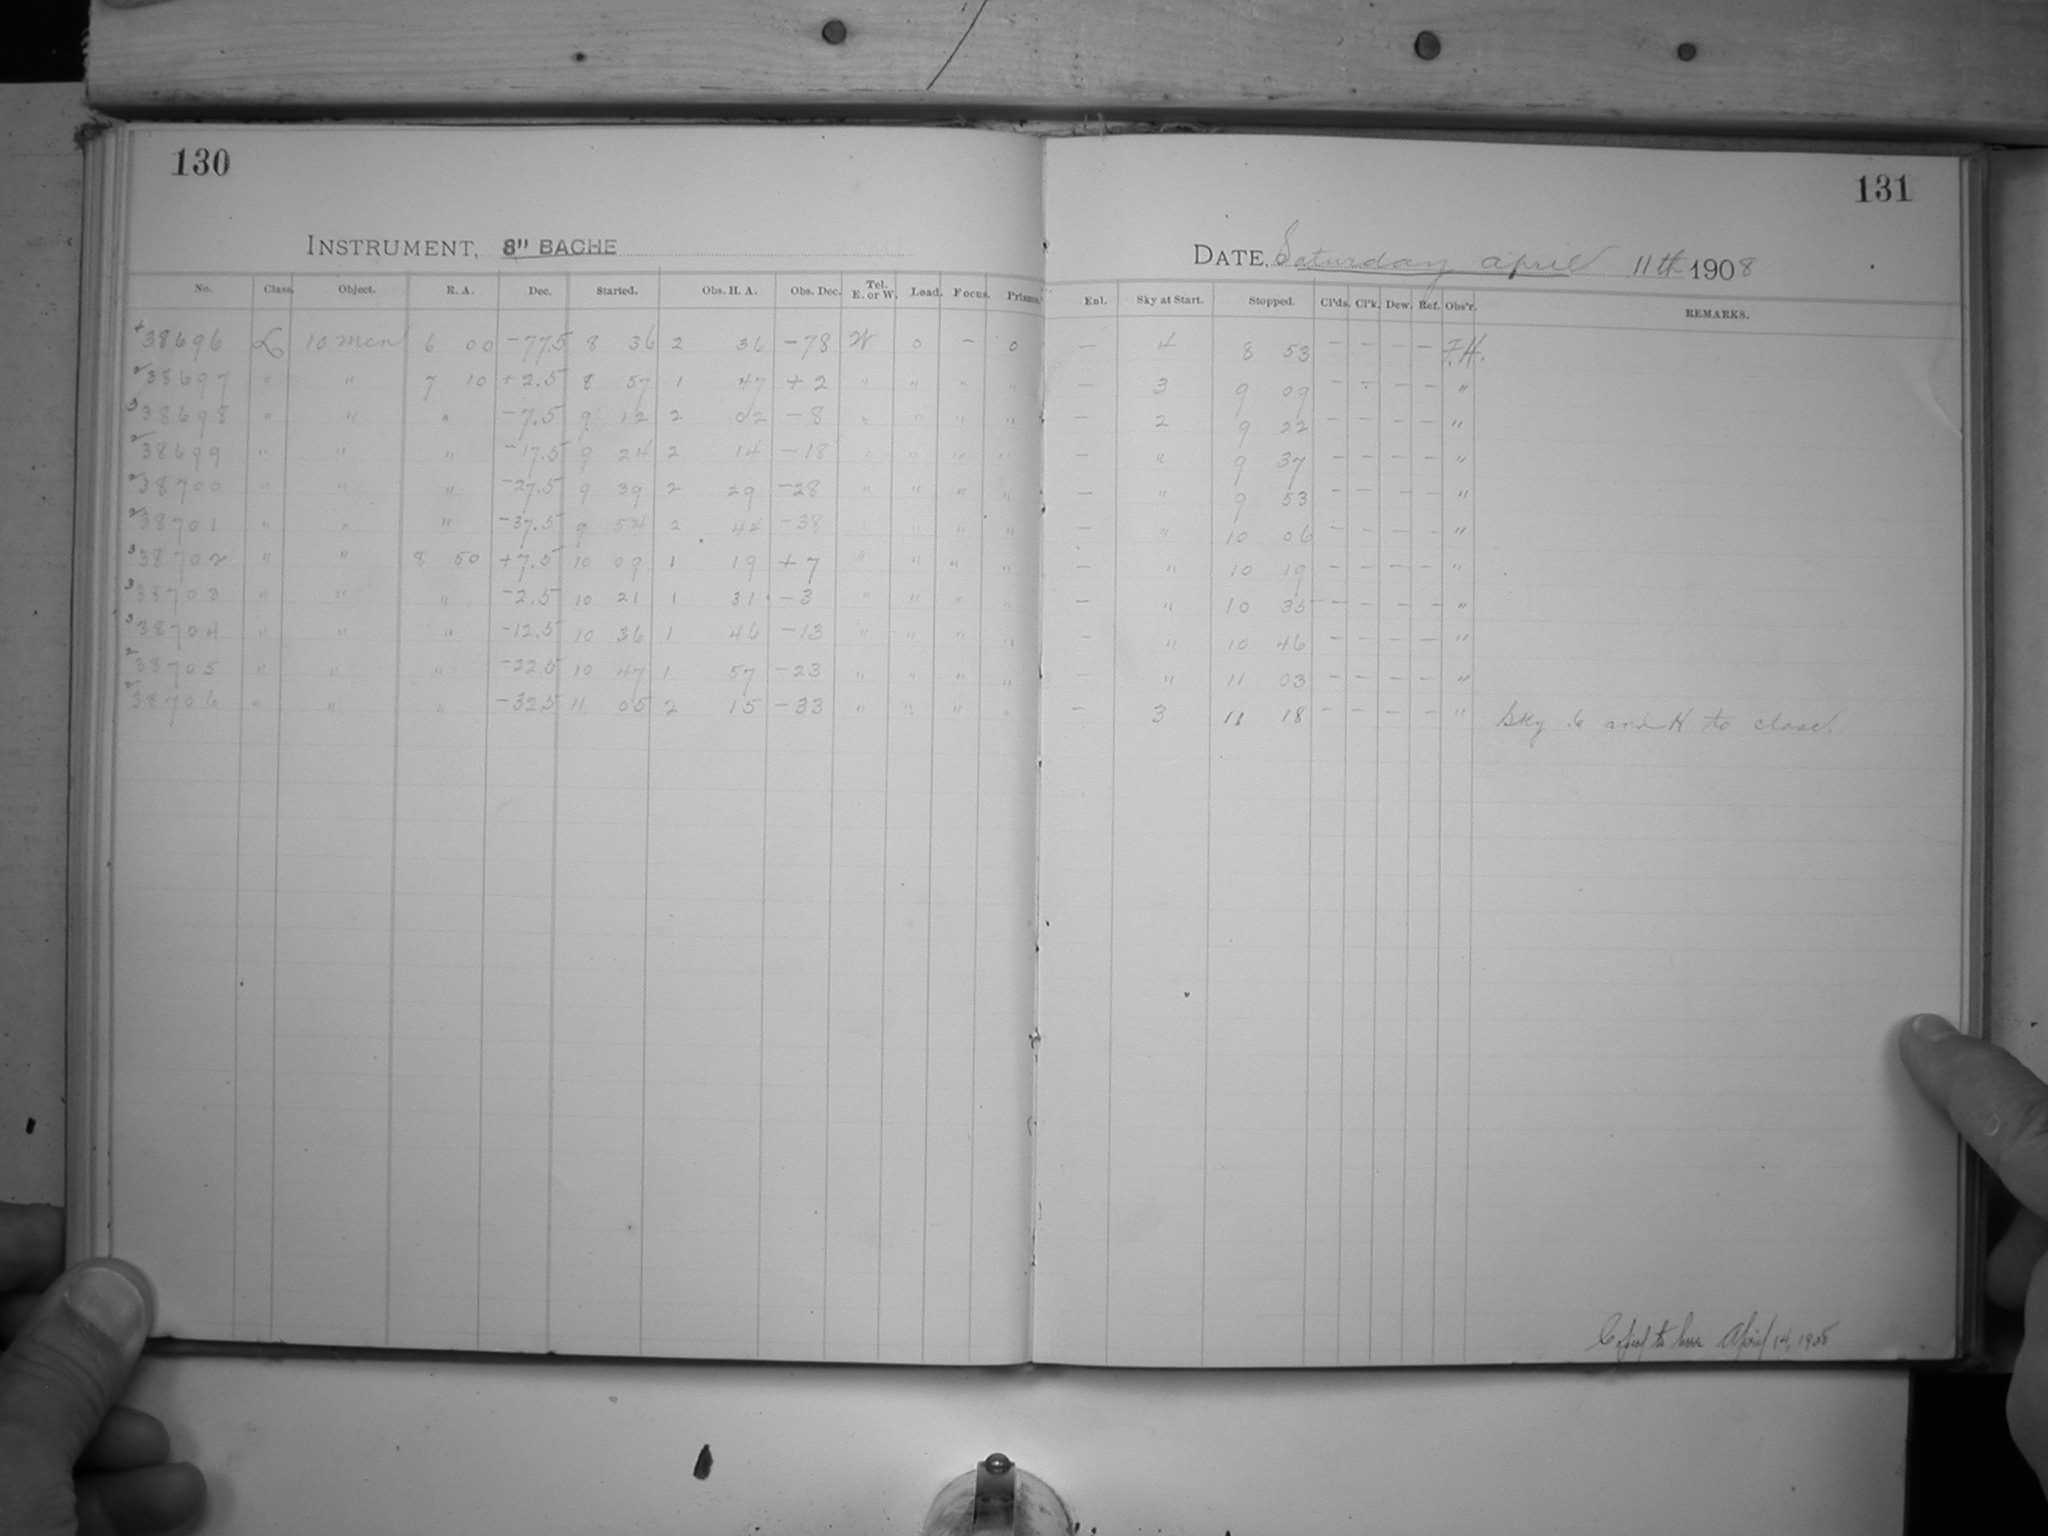 130
INSTRUMENT, 8" BACHE
No. Class. Object. R. A. Dec. Started. Obs. H. A. Obs. Dec. Tel. E. or W. Load. Focus. Prisms.
4 38696 L 10 min 6 00 -77.5 8 36 2 36 -78 W 0 - 0
2 38697 " " 7 10 +2.5 8 57 1 47 +2 " " " "
3 38698 " " " -7.5 9 12 2 02 -8 " " " "
2 38699 " " " -17.5 9 24 2 14 -18 " " " "
2 38700 " " " -27.5 9 39 2 29 -28 " " " "
2 38701 " " " -37.5 9 54 2 44 -38 " " " "
3 38702 " " 8 50 +7.5 10 09 1 19 +7 " " " "
3 38703 " " " -2.5 10 21 1 31 -3 " " " "
3 38704 " " " -12.5 10 36 1 46 -13 " " " "
2 38705 " " " -22.5 10 47 1 57 -23 " " " "
2 38706 " " " -32.5 11 05 2 15 -33 " " " "
131
DATE, Saturday april 11th 1908
Enl. Sky at Start. Stopped. Cl'ds. Cl'k. Dew. Ref. Obs'r. REMARKS.
- 4 8 53 - - - - F.H.
- 3 9 09 - - - - "
- 2 9 22 - - - - "
- " 9 37 - - - - "
- " 9 53 - - - - "
- " 10 06 - - - - "
- " 10 19 - - - - "
- " 10 35 - - - - "
- " 10 46 - - - - "
- " 11 03 - - - - "
- 3 11 18 - - - - " Sky 6 and H to close.
Copied to here April 14, 1908